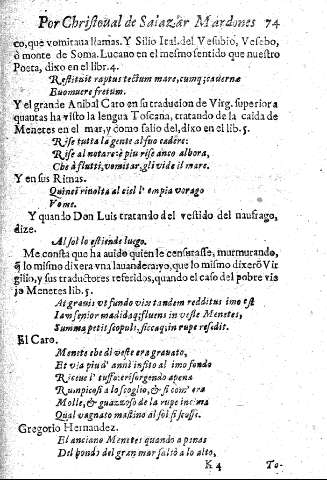 Por Christoual de Salazar Mardones 74
co, que vomitaua llamas. Y Silio Ital. del Vesubio, Vesebo,
ò monte de Soma. Lucano en el mesmo sentido que nuestro
Poeta, dixo en el libr. 4.
Restituit raptus tectum mare, cumq; cauernæ
Euomuere fretum.
Y el grande Anibal Caro en su traducion de Virg. superior a
quantas ha visto la lengua Toscana, tratando de la caida de
Menetes en el mar, y como salio del, dixo en el lib. 5.
Rise tutta la gente al suo cadére:
Rise al notare: è piu rise anco albora,
Che à flutti, vomitar, gli vide il mare.
Y en sus Rimas.
Quinci riuolta al ciel l' empia vorago
Vome.
Y quando Don Luis tratando del vestido del naufrago,
dize.
Al sol lo estiende luego.
Me consta que ha auido quien le censurasse, murmurando,
q̃ lo mismo dixera vna lauandera: yo, que lo mismo dixerõ Vir
gilio, y sus traductores referidos, quando el caso del pobre vie
jo Menetes lib. 5.
At grauis vt fundo vix tandem redditus imo est
Iam senior madidaq; fluens in veste Menetes,
Summa petit scopuli, siccaq; in rupe resedit.
El Caro.
Menete che di veste era grauato,
Et via piu d' anni insito al imo fondo
Riceue l' tuffo: e risorgendo apena
Rampicosi a lo scoglio, & si com' era
Molle, & guazzoso de la rupe in cima
Qual vagnato mastino al sol si scosse.
Gregorio Hernandez.
El anciano Menetes quando a penas
Del hondo del gran mar saltò a lo alto,
K 4 To-